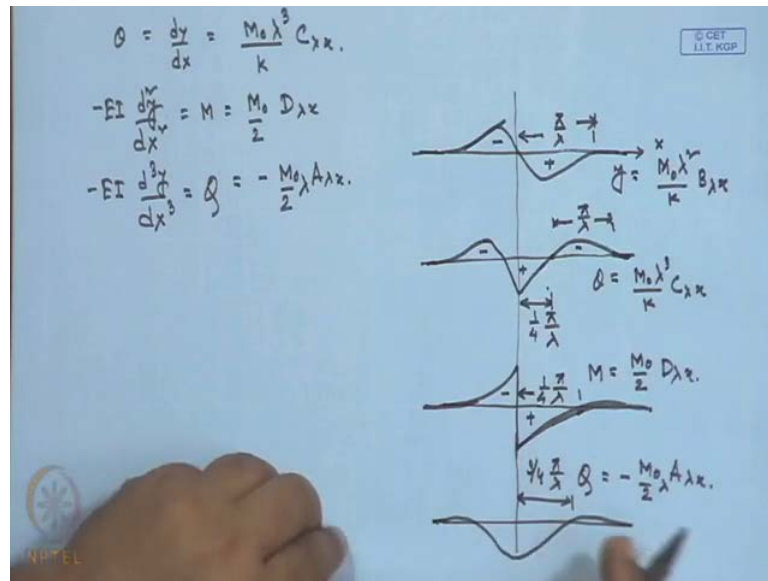 θ = dy/dx = M₀λ³/k C_λx.
-EI d²y/dx² = M = M₀/2 D_λx
-EI d³y/dx³ = Q = - M₀λ/2 A_λx.
© CET
I.I.T. KGP
π/λ
- + x
y = M₀λ²/k B_λx
π/λ
- + -
θ = M₀λ³/k C_λx
1/4 π/λ
M = M₀/2 D_λx.
- 1/4 π/λ
+
3/4 π/λ Q = - M₀λ/2 A_λx.
NPTEL